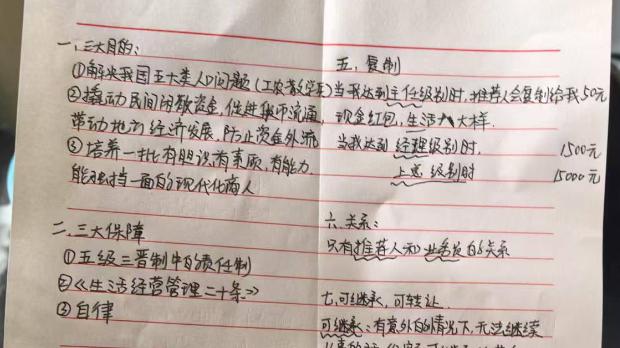 一、三大目的:
①解决我国五大类人口问题(工农
②撬动民间闲散资金,促进货币流通,
带动地方经济发展,防止资金外流
③培养一批有胆识有素质,有能力,
能独挡一面的现代化商人
二、三大保障
①五级三晋制的责任制
②《生活经营管理二十条》
③自律
五、复制
当我达到主任级别时,推荐人会复制给我50元
现金红包,生活大样.
当我达到经理级别时, 1500元
上总级别时 15000元
六、关系:
只有推荐人和业务员的关系
七、可继承,可转让.
可继承:有意外的情况下,无法继续